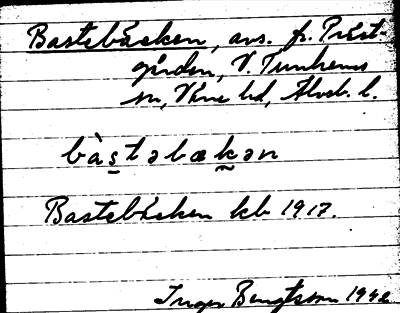 Bastebäcken, avs. fr. Präst-
gården, V. Tunhems
sn, Väne hd, Älvsb. l.
bàs̱təbæḵ̰ən
Bastebäcken kb 1917.
Inger Bengtsson 1942